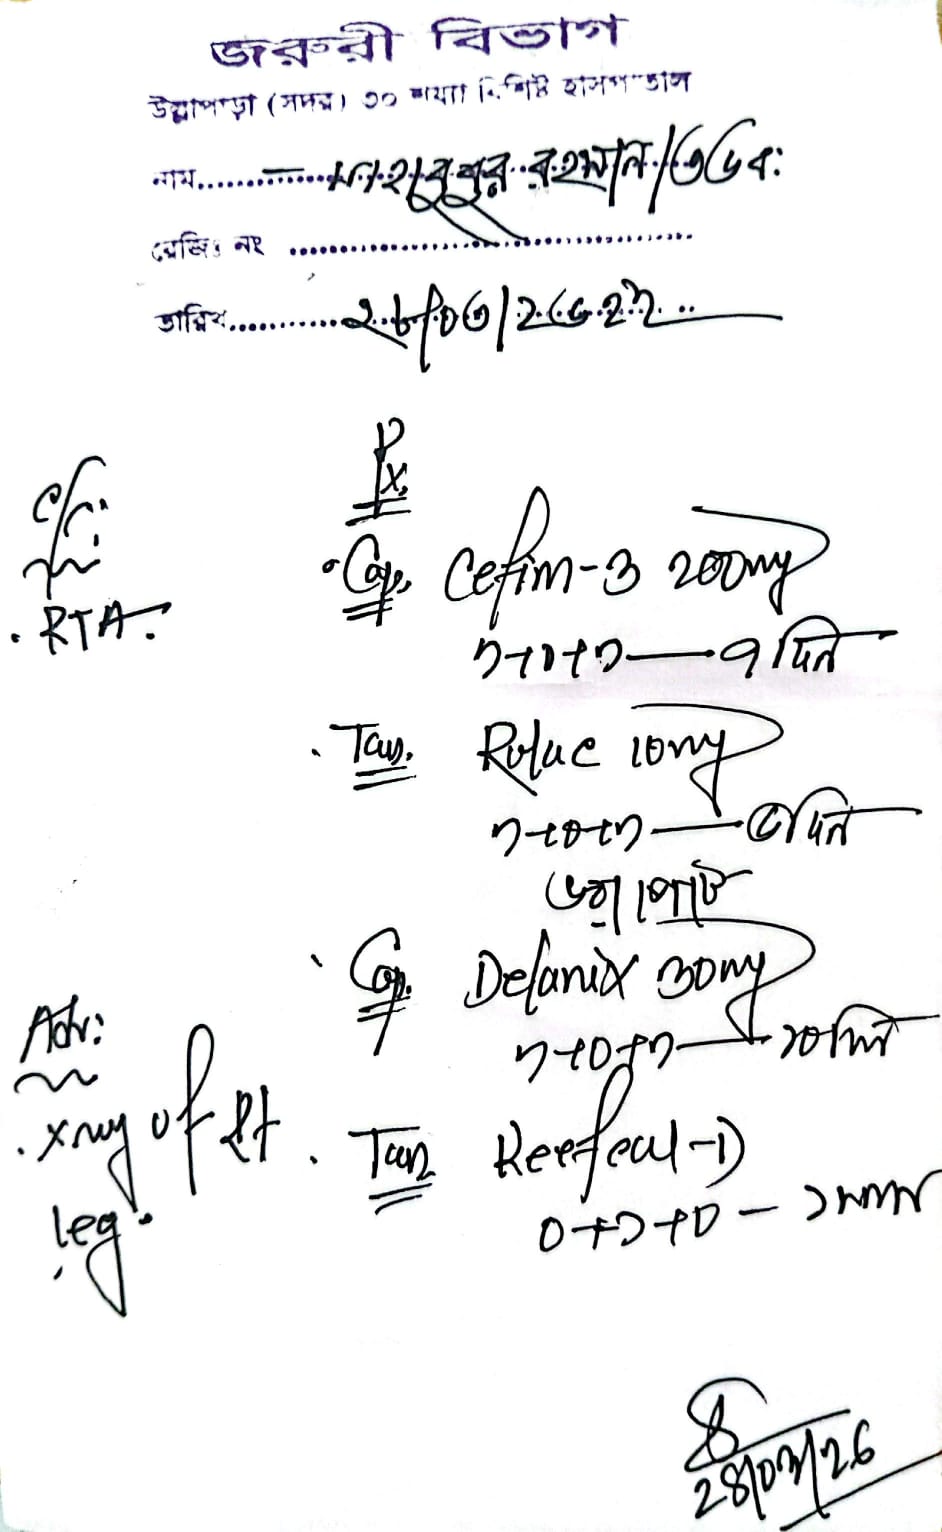 জরুরী বিভাগ
উল্লাপাড়া (সদর) ৩০ শয্যা বিশিষ্ট হাসপাতাল
নাম.......... মাহবুবুর রহমান /৩৬ব:
রেজিঃ নং ..........
তারিখ..........২৮/০৩/২০২২
C/C:
. RTA.
Rx,
. Cap. Cefim-3 200mg
১+০+১ — ৭ দিন
. Tab. Rolac 10mg
১+০+১ — ৫ দিন
ভরা পেটে
. Cap. Delanix 30mg
১+০+১ — ১০ দিন
Adv:
. xray of Rt
leg.
. Tab Keefcal-D
০+১+০ — ১ মাস
28/03/26